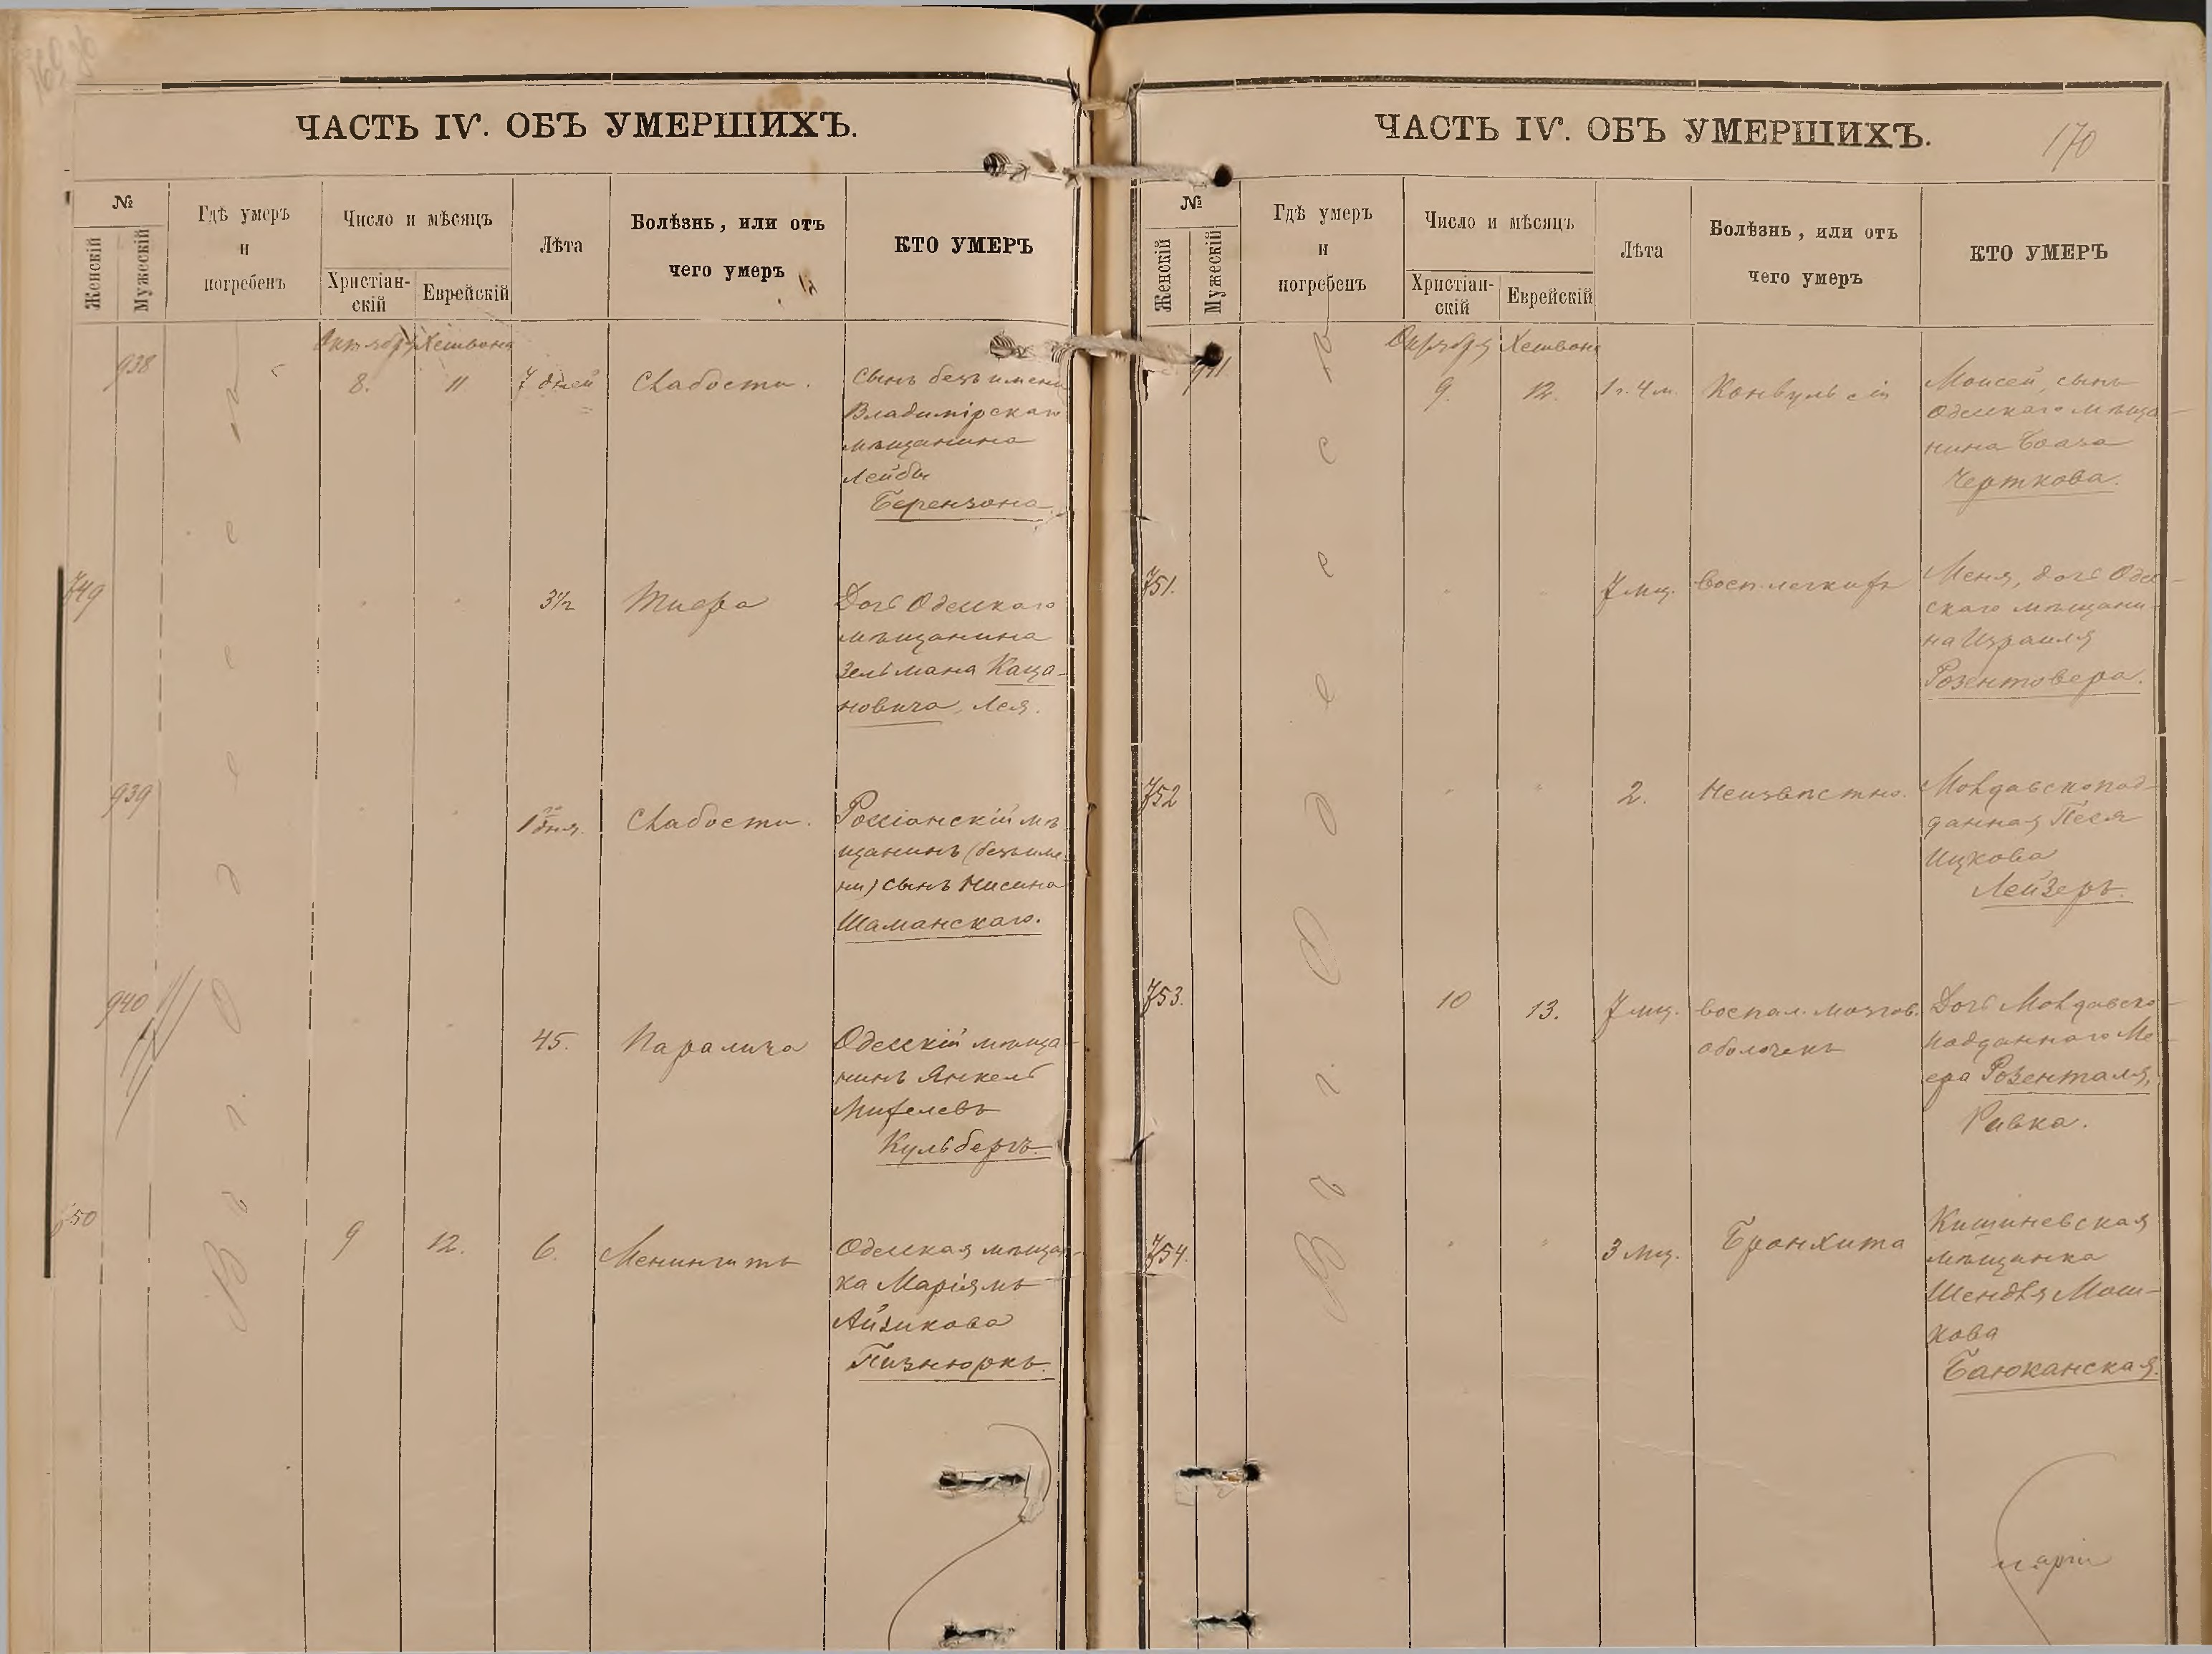 ЧАСТЬ IV. ОБЪ УМЕРШИХЪ.
№
Женскій
Мужескій
Гдѣ умеръ
и
погребенъ
Число и мѣсяцъ
Христіан-
скій
Еврейскій
Лѣта
Болѣзнь, или отъ
чего умеръ
КТО УМЕРЪ
Октября Хешвана
938
8. 11 7 дней Слабости.
Сынъ безъ имени
Владимірскаго
мѣщанина
Лейбы
Берензона
749
3½ Тифа
Дочь Одесскаго
мѣщанина
Зельмана Каца-
новича, Лея.
939
1 дня. Слабости.
Россіанскій мѣ
щанинъ (безъ име
ни) сынъ Нисина
Шаманскаго.
940
45. Паралича
Одесскій мѣща-
нинъ Янкель
Михелевъ
Кульбергъ.
750
9 12. 6. Менингитъ
Одесская мѣщан-
ка Маріямъ
Айзикова
Пизнюркъ.
Въ г. Одессе
ЧАСТЬ IV. ОБЪ УМЕРШИХЪ.
170
№
Женскій
Мужескій
Гдѣ умеръ
и
погребенъ
Число и мѣсяцъ
Христіан-
скій
Еврейскій
Лѣта
Болѣзнь, или отъ
чего умеръ
КТО УМЕРЪ
Октября Хешвана
941
9. 12. 1 г. 4 м. Конвульсіи
Моисей, сынъ
Одесскаго мѣща-
нина Боаза
Черткова.
751.
7 мц. Восп. легкихъ
Меня, дочь Одес-
скаго мѣщани-
на Израиля
Розентовера.
752
2. Неизвѣстно.
Молдавскопод-
данная Песя
Ицкова
Лейзеръ.
753.
10 13. 7 мц. воспал. мозгов.
оболочекъ
Дочь Молдавско-
подданнаго Ме-
ера Розенталя,
Ривка.
754.
3 мц. Бронхита
Кишиневская
мѣщанка
Шендля Мош-
кова
Баюканская.
Въ г. Одессе